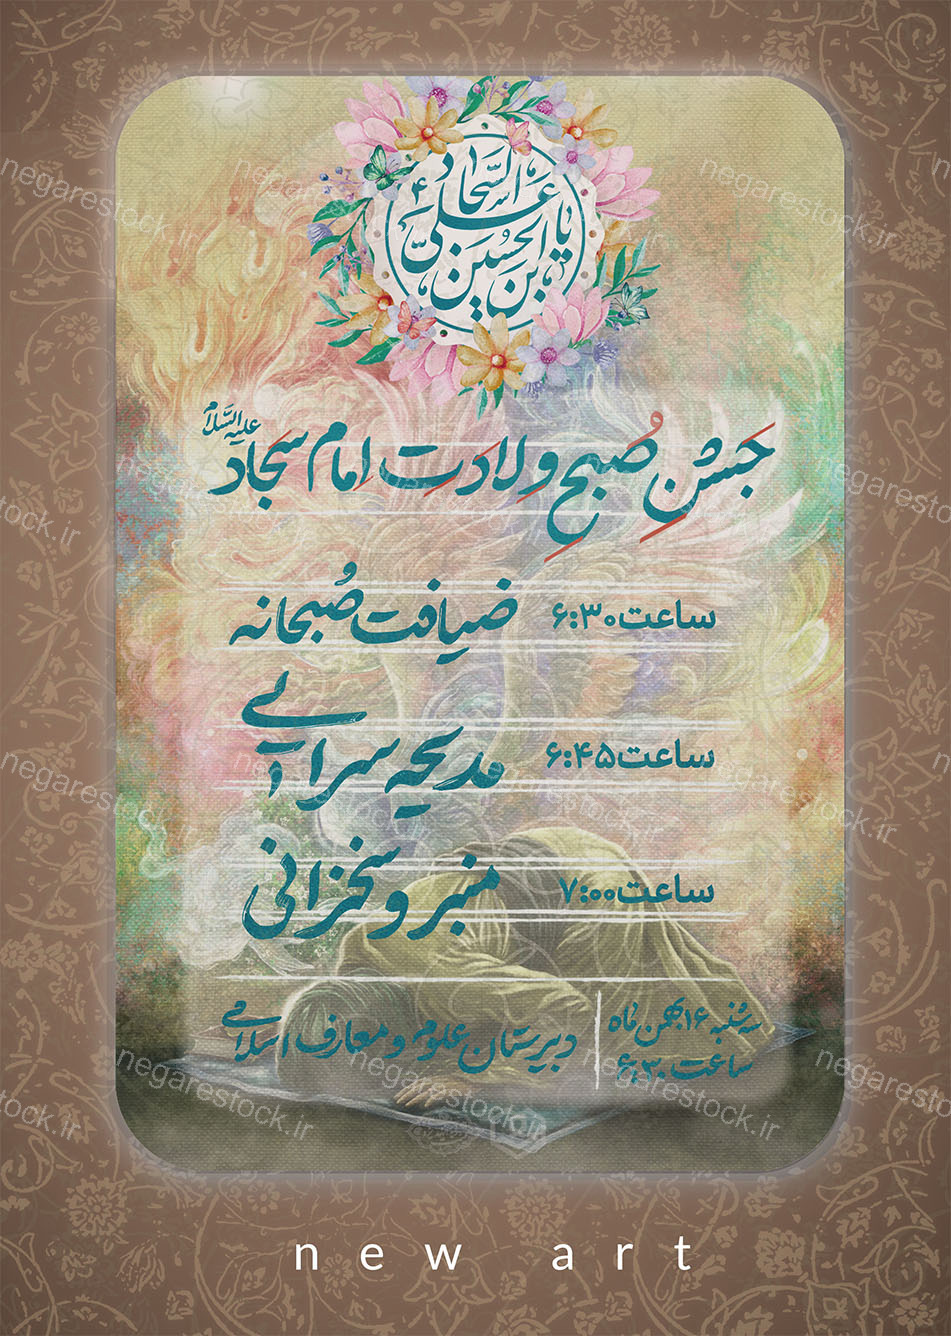 یا علی
ابن الحسین
السجاد
جشن صبح ولادت امام سجاد علیه السلام
ساعت ۶:۳۰ ضیافت صبحانه
ساعت ۶:۴۵ مدیحه سرایی
ساعت ۷:۰۰ منبر و سخنرانی
سه شنبه ۱۶ بهمن ماه
ساعت ۶:۳۰
دبیرستان علوم و معارف اسلامی
new art
negarestock.ir